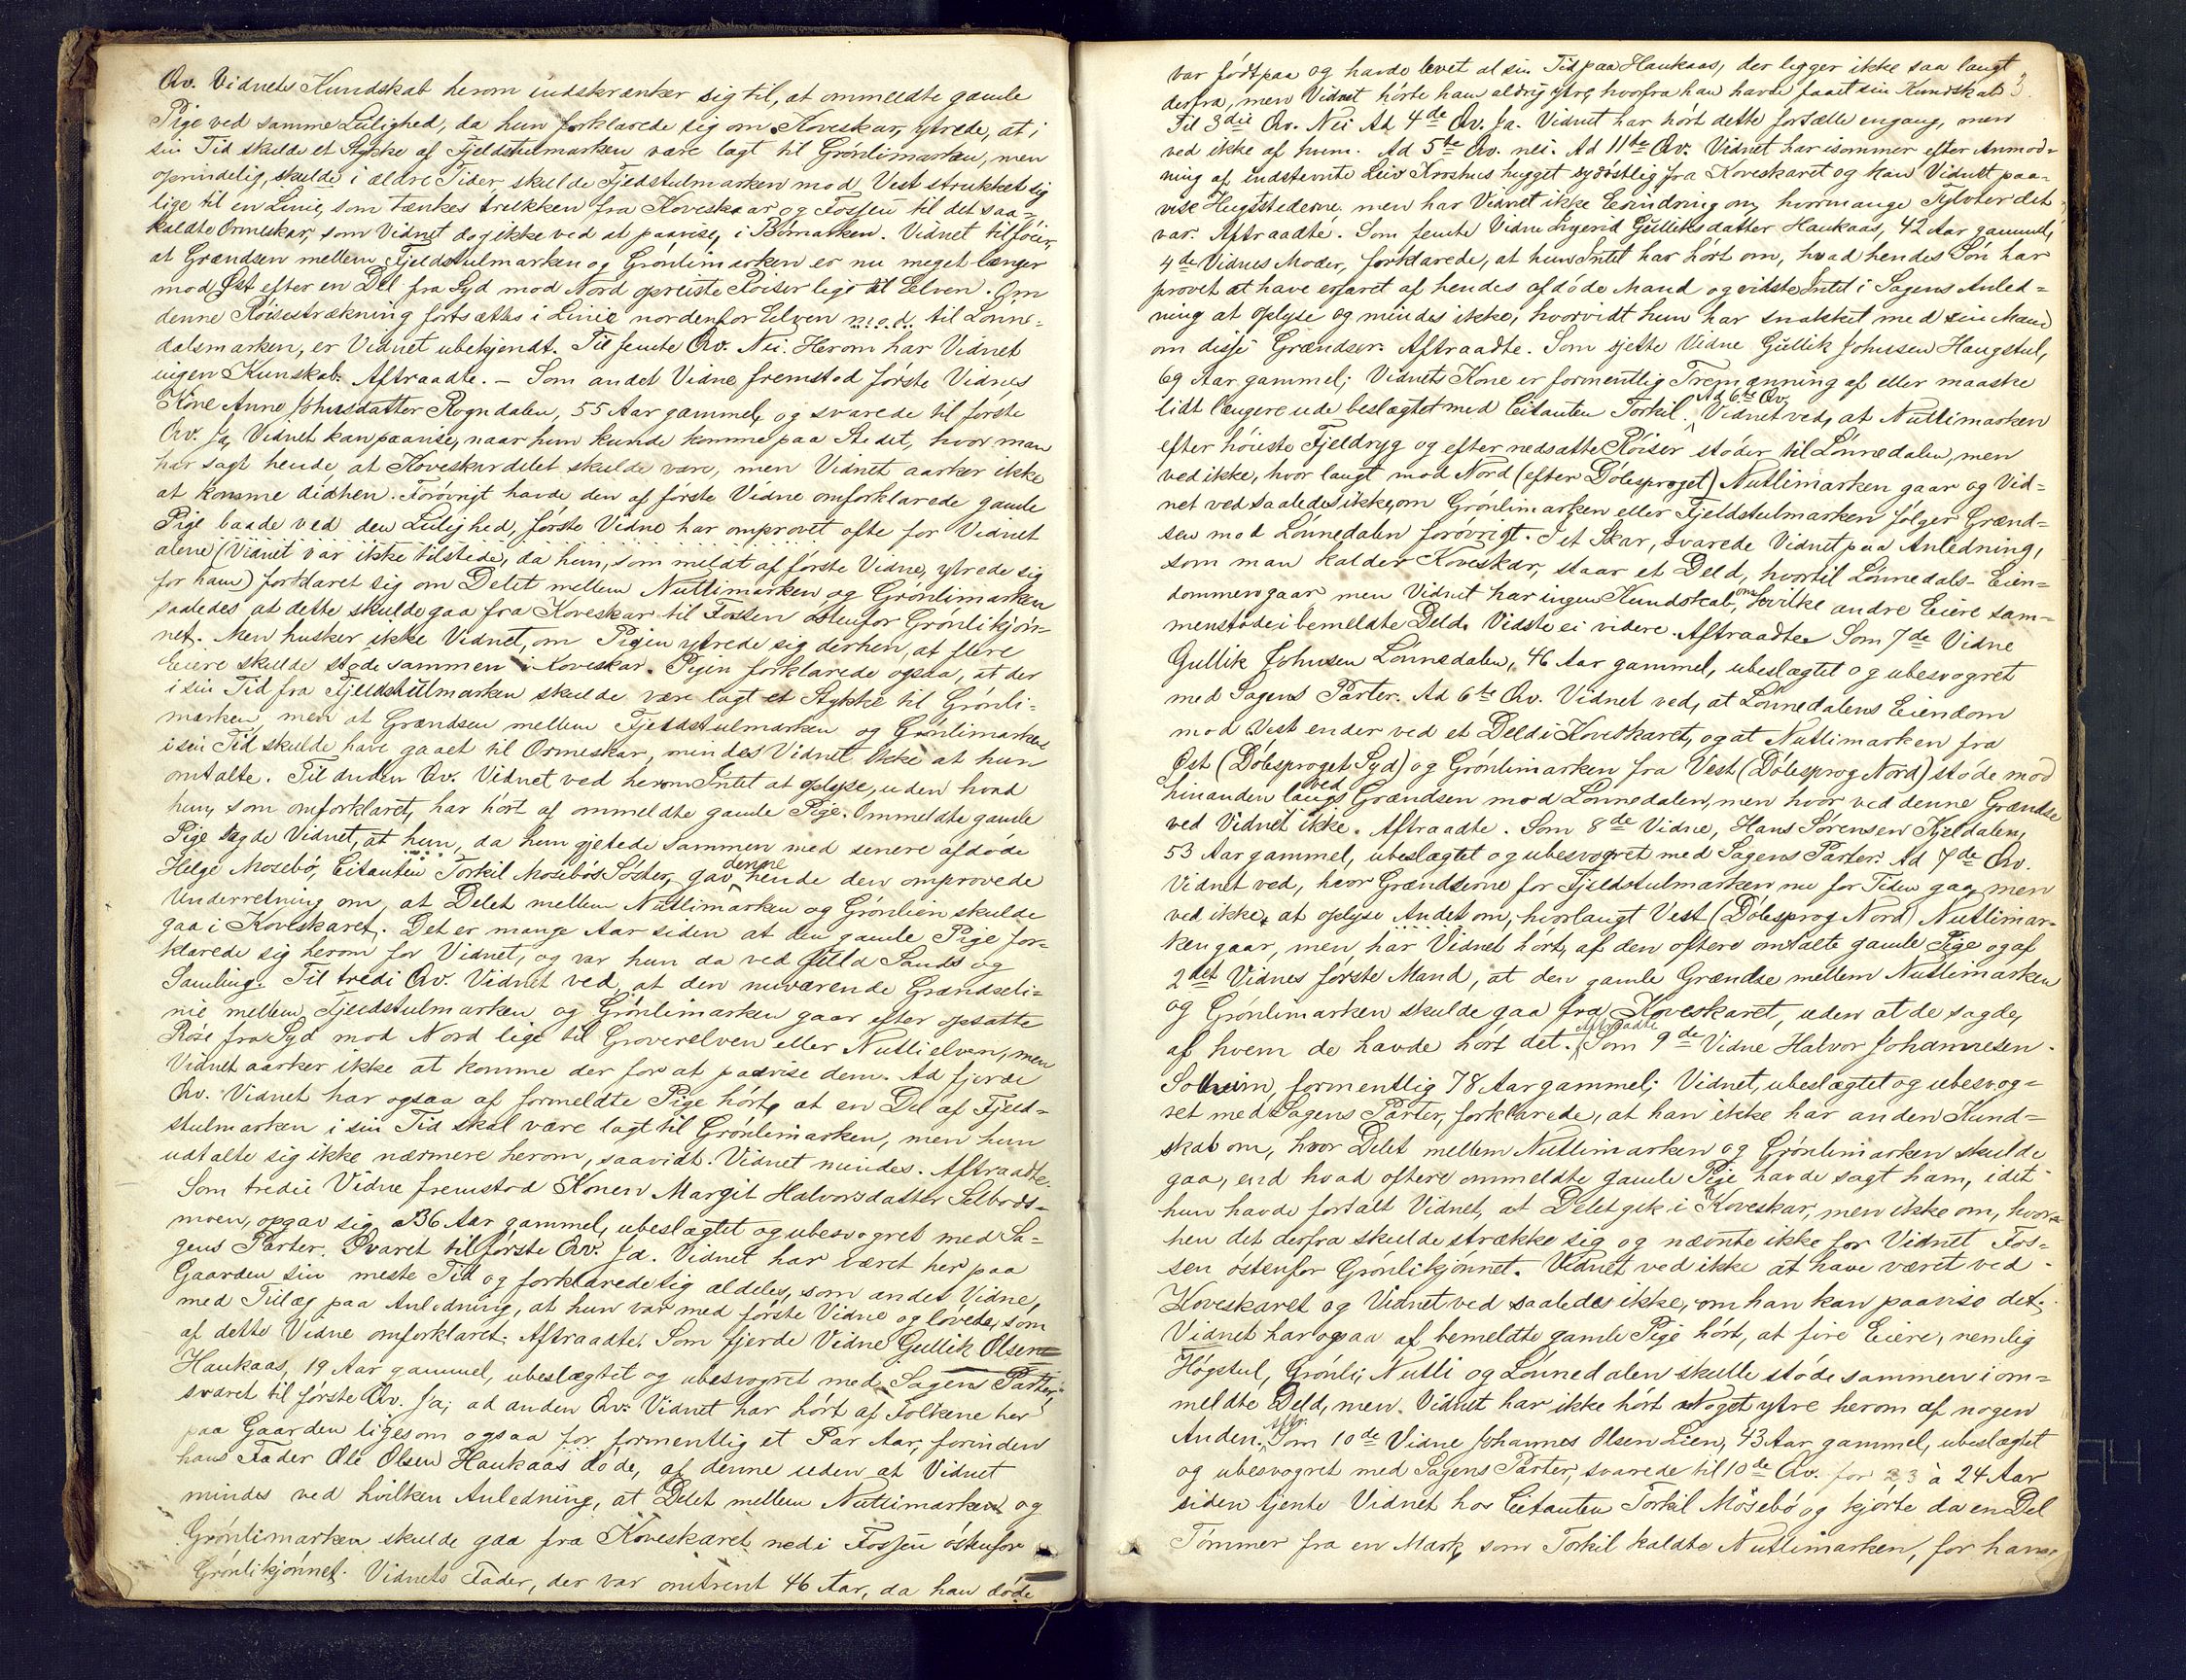 Qv. Vidnets Kundskab herom indskrænker sig til, at ommeldte gamle
Pige ved samme Leilighed, da hun forklarede sig om Koveskar, ytrede, at i
sin Tid skulde et Stykke af Fjeldstulmarken være lagt til Grønlimarken, men
oprindelig, skulde i ældre Tider skulde Fjedstulmarken mod Vest strukket sig
lige til en Linie, som tænkes trukken fra Koveskaar og Fossen til det saa-
kaldte Ormeskar, som Vidnet dog ikke ved at paavise, i Bömarken. Vidnet tilföier,
at Grændsen mellem Fjeldstulmarken og Grönlimarken er nu meget længer
mod Öst efter en Del fra Syd mod Nord opreiste Röiser lige til Elven. Om
denne Röisestrækning fortsættes i Linie nordenfor Elven mod til Lönne-
dalsmarken, er Vidnet ubekjendt. Til femte Qv. Nei. Herom har Vidnet
ingen Kunskab. Aftraadte. — Som andet Vidne fremstod förste Vidnes
Kone Anne Johnsdatter Rogndalen, 55 Aar gammel, og svarede til förste
Qv. Ja, Vidnet kan paavise, naar hun kunde komme paa Stedet, hvor man
har sagt hende at Koveskardelet skulde være, men Vidnet aarker ikke
at komme didhen. Forövrigt havde den af förste Vidne omforklarede gamle
Pige baade ved den Leilighed, förste Vidne har omprovet ofte for Vidnet
alene (Vidnet var ikke tilstede, da hun, som meldt af förste Vidne, ytrede sig
for ham) forklaret sig om Delet mellem Nutlimarken og Grönlimarken
saaledes at dette skulde gaa fra Koveskar til Fossen östenfor Grönlikjön-
net. Men husker ikke Vidnet, om Pigen ytrede sig derhen, at flere
Eiere skulde stöde sammen i Koveskar. Pigen forklarede ogsaa, at der
i sin Tid fra Fjeldstulmarken skulde være lagt et Stykke til Grönli-
marken, men at Grændsen mellem Fjeldstulmarken og Grönlimarken
i sin Tid skulde have gaaet til Ormeskar, mindes Vidnet ikke at hun
omtalte. Til anden Qv. Vidnet ved herom Intet at oplyse, uden hvad
hun, som omforklaret, har hört af ommeldte gamle Pige. Ommeldte gamle
Pige sagde Vidnet, at hun, da hun gjetede sammen med senere afdöde
Helge Mosebö, Citanten Torkil Mosebös Söster, gav denne hende den omprovede
Underretning om, at Delet mellem Nutlimarken og Grönlien skulde
gaa i Koveskaret. Det er mange Aar siden at den gamle Pige for-
klarede sig herom for Vidnet, og var hun da ved fulld Sands og
Samling. Til tredi Qv. Vidnet ved, at den nuværende Grændseli-
nie mellem Fjeldstulmarken og Grönlimarken gaar efter opsatte
Röse fra Syd mod Nord lige til Groverelven eller Nutlielven, men
Vidnet aarker ikke at komme der for at paavise dem. Ad fjerde
Qv. Vidnet har ogsaa af formeldte Pige hört, at en Del af Fjeld-
stulmarken i sin Tid skal være lagt til Grönlimarken, men hun
udtalte sig ikke nærmere herom, saavidt Vidnet mindes. Aftraadte.
Som tredie Vidne fremstod Konen Margit Halvorsdatter Selbods-
moen, opgav sig 36 Aar gammel, ubeslægtet og ubesvogret med Sa-
gens Parter. Svaret til förste Qv. Ja. Vidnet har været her paa
Gaarden sin meste Tid og forklarede sig aldeles, som andet Vidne,
med Tillæg paa Anledning, at hun var med förste Vidne og lövede, som
af dette Vidne omforklaret. Aftraadte. Som fjerde Vidne Gullik Olsen
Haukaas, 19 Aar gammel, ubeslægtet og ubesvogret med Sagens Parter,
svaret til förste Qv. Ja; ad anden Qv. Vidnet har hört af Folkene her
paa Gaarden ligesom ogsaa for formentlig et Par Aar, forinden
hans Fader Ole Olsen Haukaas döde, af denne uden at Vidnet
mindes ved hvilken Anledning, at Delet mellem Nutlimarken og
Grönlimarken skulde gaa fra Koveskaret ned i Fossen östenfor
Grönlikjönnet. Vidnets Fader, der var omtrent 46 Aar, da han döde
var födt paa og havde levet al sin Tid paa Haukaas, der ligger ikke saa langt
derfra, men Vidnet hörte ham aldrig ytre, hvorfra han havde faaet sin Kundskab 3.
Til 3die Qv. Nei Ad 4de Qv. Ja. Vidnet har hört dette fortælle engang, men
ved ikke af hvem. Ad 5te Qv. nei. Ad 11te Qv. Vidnet har isommer efter Anmod-
ning af indstevnte Leiv Kroshus hugget sydöstlig fra Koveskaret og kan Vidnet paa-
vise Hugststederne men har Vidnet ikke Erindring om, hvormange Tylvter det
var. Aftraadte. Som femte Vidne Sigerid Gulliksdatter Haukaas, 42 Aar gammel,
4de Vidnes Moder, forklarede, at hun Intet har hört om, hvad hendes Sön har
provet at have erfaret af hendes afdöde Mand og vidste Intet i Sagens Anled-
ning at oplyse og mindes ikke, hvorvidt hun har snakket med sin Mand
om disse Grændser. Aftraadte. Som sjette Vidne Gullik Johnsen Haugstul,
69 Aar gammel; Vidnets Kone er formentlig Tremænning af eller maaske
lidt længere ude beslægtet med Citanten Torkil. Ad 6te Qv. Vidnet ved, at Nutlimarken
efter höieste Fjeldryg og efter nedsatte Röiser stöder til Lönnedalen, men
ved ikke, hvor langt mod Nord (efter Dölesproget) Nutlimarken gaar og Vid-
net ved saaledes ikke, om Grönlimarken eller Fjeldstulmarken fölger Grænd-
sen mod Lönnedalen forövrigt. I et Skar, svarede Vidnet paa Anledning,
som man kalder Koveskar, staar et Deld, hvortil Lönnedals- Eien-
dommen gaar men Vidnet har ingen Kundskab om, hvilke andre Eiere sam-
menstöde i bemeldte Deld. Vidste ei videre. Aftraadte. Som 7de Vidne
Gullik Johnsen Lönnedalen, 46 Aar gammel, ubeslægtet og ubesvogret
med Sagens Parter. Ad 6te Qv. Vidnet ved, at Lönnedalens Eiendom
mod Vest ender ved et Deld i Koveskaret, og at Nutlimarken fra
Öst (Dölesproget Syd) og Grönlimarken fra Vest (Dölesprog Nord) stöde mod
hinanden langs ved Grændsen mod Lönnedalen, men hvor ved denne Grændse
ved Vidnet ikke. Aftraadte. Som 8de Vidne, Hans Sörensen Kjeldalen,
53 Aar gammel, ubeslægtet og ubesvogret med Sagens Parter. Ad 7de Qv.
Vidnet ved, hvor Grændserne for Fjeldstulmarken nu for Tiden gaa, men
ved ikke, at oplyse Andet om, hvorlangt Vest (Dölesprog Nord) Nutlimar-
ken gaar, men har Vidnet hört, af den oftere omtalte gamle Pige og af
2det Vidnes förste Mand, at den gamle Grændse mellem Nutlimarken
og Grönlimarken skulde gaa fra Koveskaret, uden at de sagde,
af hvem de havde hört det. Aftraadte Som 9de Vidne Halvor Johannesen
Solheim, formentlig 78 Aar gammel; Vidnet, ubeslægtet og ubesvog-
ret med Sagens Parter, forklarede, at han ikke har anden Kund-
skab om, hvor Delet mellem Nutlimarken og Grönlimarken skulde
gaa, end hvad oftere ommeldte gamle Pige havde sagt ham, idet
hun havde fortalt Vidnet, at Delet gik i Koveskar, men ikke om, hvor-
hen det derfra skulde strække sig og nævnte ikke for Vidnet Fos-
sen östenfor Grönlikjönnet. Vidnet ved ikke at have været ved
Koveskaret og Vidnet ved saaledes ikke, om han kan paavise det.
Vidnet har ogsaa af bemeldte gamle Pige hört, at fire Eiere, nemlig
Högstul, Grönli, Nutli og Lönnedalen skulle stöde sammen i om-
meldte Deld, men Vidnet har ikke hört Noget ytre herom af nogen
Anden. Aftr. Som 10de Vidne Johannes Olsen Lien, 43 Aar gammel, ubeslægtet
og ubesvogret med Sagens Parter, svarede til 10de Qv. for 23 à 24 Aar
siden tjente Vidnet hos Citanten Torkil Mösebö og kjörte da en Del
Tömmer fra en Mark, som Torkil kaldte Nutlimarken, for ham